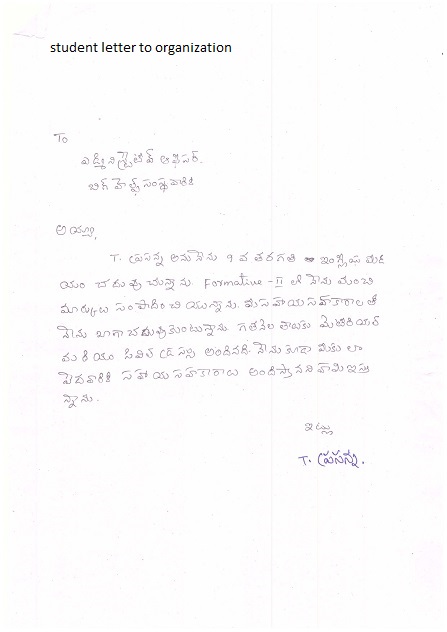 student letter to organization
To
ఎడ్మినిస్ట్రేటివ్ ఆఫీసర్.
బిగ్ హెల్ప్ సంస్థ వారికి
అయ్యా,
T. ప్రసన్న అను నేను 9 వ తరగతి ఇంగ్లీషు మీడి
యం చదువుచున్నాను. Formative - II లో నేను మంచి
మార్కులు సంపాదించి యున్నాను. మీ సహాయ సహకారాలతో
నేను బాగా చదువుకుంటున్నాను. గత నెల తాలుకు మెటీరియల్
మరియు అందినది. నేను కూడా మీకు లా
పేదవారికి సహాయ సహకారాలు అందిస్తానని హామి ఇస్తు
న్నాను.
ఇట్లు
T. ప్రసన్న.